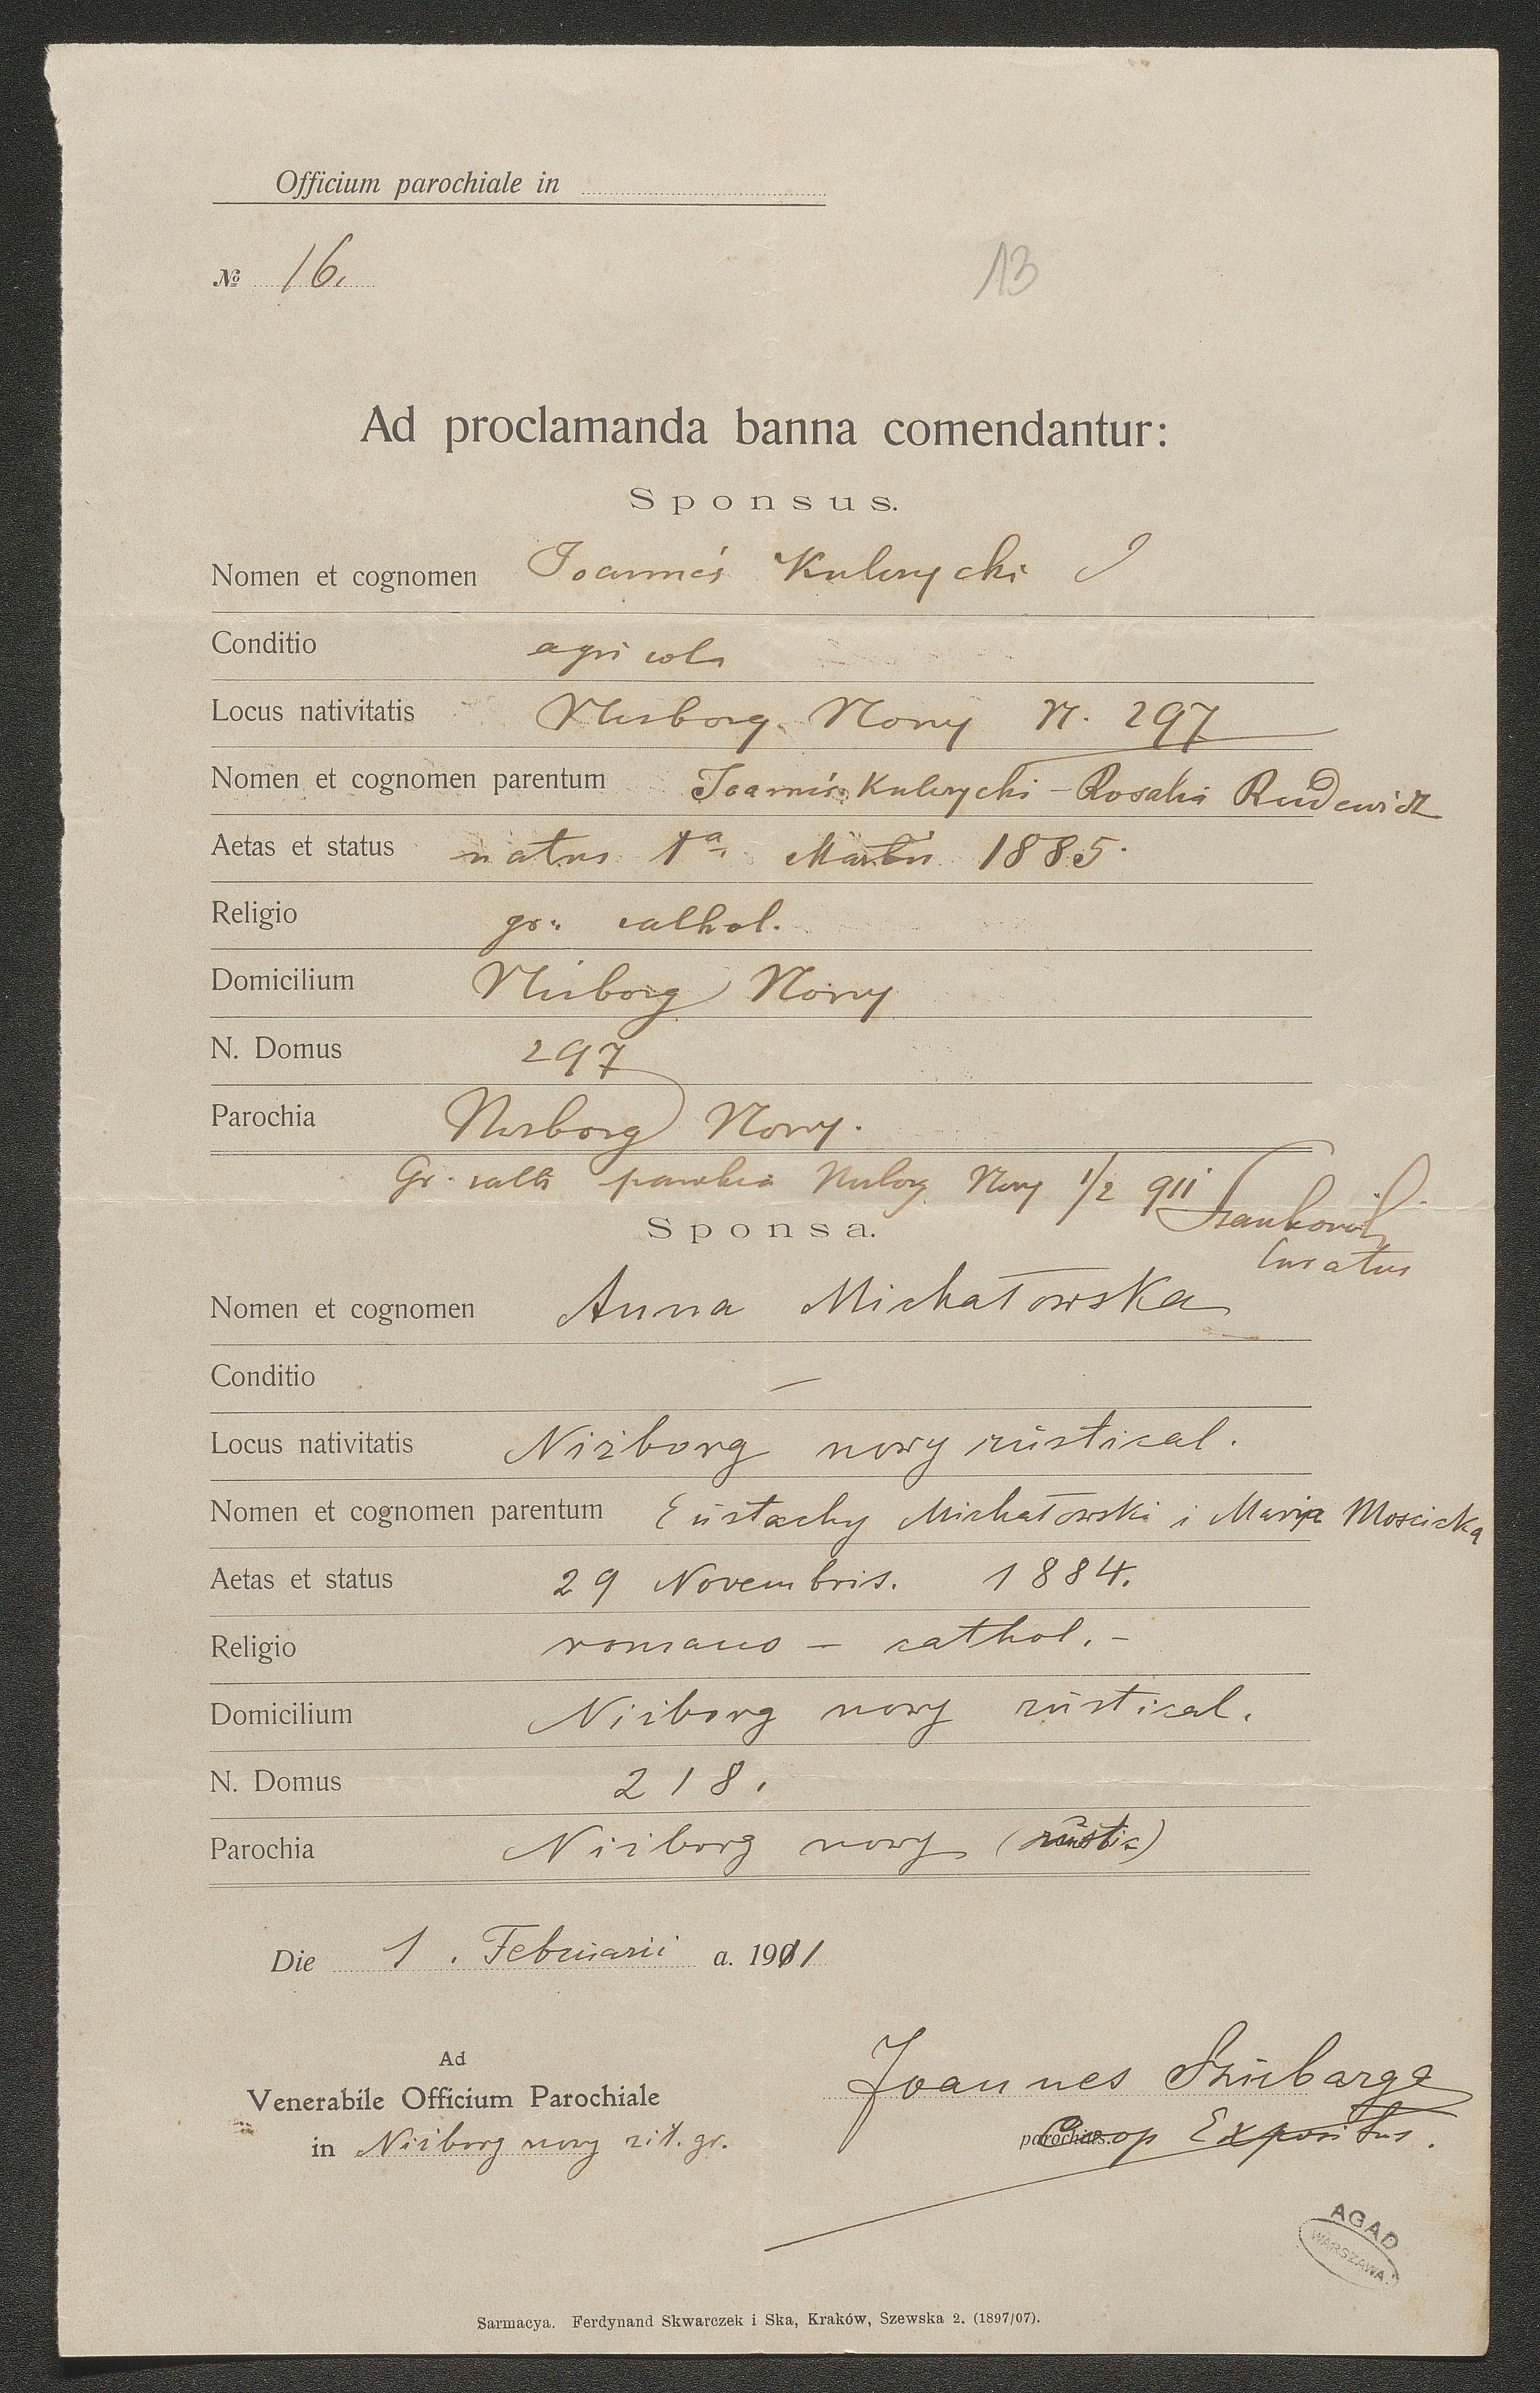 Officium parochiale in
№ 16.
13
Ad proclamanda banna comendantur:
Sponsus.
Nomen et cognomen Joannes Kulczycki
Conditio agricola
Locus nativitatis Niżborg Nowy N. 297
Nomen et cognomen parentum Joannes Kulczycki - Rosalia Rudewicz
Aetas et status natus 1a Martii 1885.
Religio gr. cathol.
Domicilium Niżborg Nowy
N. Domus 297
Parochia Niżborg Nowy.
Gr. cath parochia Niżborg Nowy 1/2 911
Curatus
Sponsa.
Nomen et cognomen Anna Michałowska
Conditio —
Locus nativitatis Niżborg nowy rustical.
Nomen et cognomen parentum Eustachy Michałowski i Marya Moscicka
Aetas et status 29 Novembris. 1884.
Religio romano - cathol. -
Domicilium Niżborg nowy rustical.
N. Domus 218.
Parochia Niżborg nowy (rustic)
Die 1. Februarii a. 1911
Ad
Venerabile Officium Parochiale
in Niżborg nowy rit. gr.
Joannes
parochus. Coop Expositus.
AGAD
WARSZAWA
Sarmacya. Ferdynand Skwarczek i Ska, Kraków, Szewska 2. (1897/07).